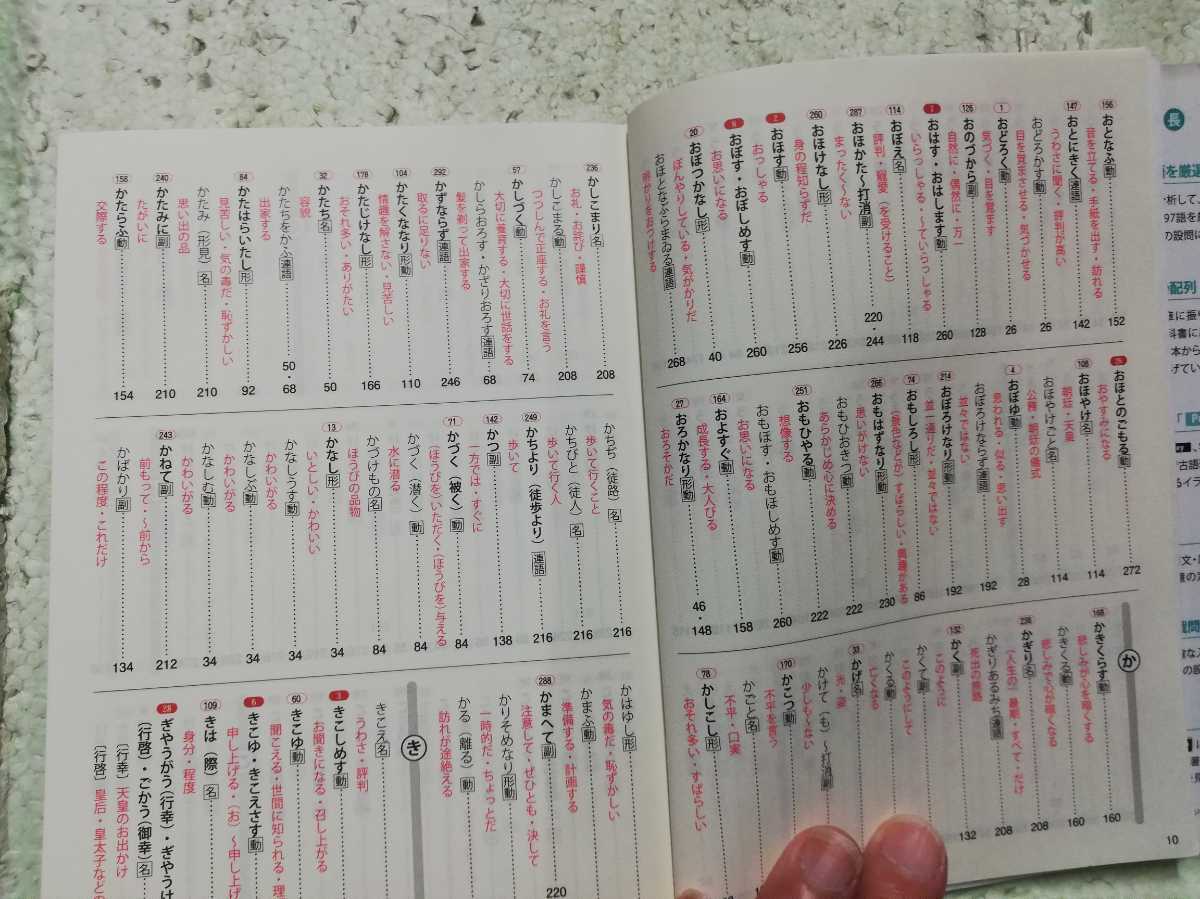 156 おとなふ 動 152
音を立てる・手紙を出す・訪れる
147 おとにきく 連語 142
うわさに聞く・評判が高い
おどろかす 動 26
目を覚まさせる・気づかせる
1 おどろく 動 26
気づく・目を覚ます
126 おのづから 副 128
自然に・偶然に・万一
おはす・おはします 動 260
いらっしゃる・〜ていらっしゃる
114 おぼえ 名 118
評判・寵愛(を受けること)
287 おほかた〜打消 副 220・244
まったく〜ない
260 おほけなし 形 226
身の程知らずだ
2 おほす 動 256
おっしゃる
おぼす・おぼしめす 動 260
お思いになる
20 おぼつかなし 形 40
ぼんやりしている・気がかりだ
おほとなぶらまゐる 連語 268
明かりをおつけする
おほとのごもる 動 272
おやすみになる
108 おほやけ 名 114
朝廷・天皇
おほやけごと 名 114
公務・朝廷の儀式
4 おぼゆ 動 28
思われる・似る・思い出す
おぼろけならず 連語 192
並々ではない
214 おぼろけなり 形動 192
並一通りだ・並々ではない
74 おもしろし 形 86
(景色などが)すばらしい・興趣がある
266 おもはずなり 形動 230
思いがけない
おもひおきつ 動 222
あらかじめ心に決める
251 おもひやる 動 222
想像する
おもほす・おもほしめす 動 260
お思いになる
164 およすぐ 動 158
成長する・大人びる
27 おろかなり 形動 46・148
おろそかだ
か
168 かきくらす 動 160
悲しみが心を暗くする
かきくる 動 160
悲しみで心が暗くなる
236 かぎり 名 208
(人生の)最期・すべて・だけ
かぎりあるみち 連語 208
死出の旅路
132 かく 副 132
このように
かくて 副
このようにして
かくる 動
亡くなる
33 かげ 名
光・姿
かけて(も)〜打消 副
少しも〜ない
170 かこつ 動
不平を言う
かごと 名
不平・口実
78 かしこし 形
おそれ多い・すばらしい
10
236 かしこまり 名 208
お礼・お詫び・謹慎
かしこまる 動 208
つつしんで正座する・お礼を言う
57 かしづく 動 74
大切に養育する・大切に世話をする
かしらおろす・かざりおろす 連語 68
髪を剃って出家する
292 かずならず 連語 246
取るに足りない
104 かたくななり 形動 110
情趣を解さない・見苦しい
178 かたじけなし 形 166
おそれ多い・ありがたい
32 かたち 名 50
容貌
かたちをかふ 連語 50・68
出家する
84 かたはらいたし 形 92
見苦しい・気の毒だ・恥ずかしい
かたみ(形見) 名 210
思い出の品
240 かたみに 副 210
たがいに
158 かたらふ 動 154
交際する
かちぢ(徒路) 名 216
歩いて行くこと
かちびと(徒人) 名 216
歩いて行く人
249 かちより(徒歩より) 連語 216
歩いて
142 かつ 副 138
一方では・すぐに
71 かづく(被く) 動 84
(ほうびを)いただく・(ほうびを)与える
かづく(潜く) 動 84
水に潜る
かづけもの 名 84
ほうびの品物
13 かなし 形 34
いとしい・かわいい
かなしうす 動 34
かわいがる
かなしぶ 動 34
かわいがる
かなしむ 動 34
かわいがる
243 かねて 副 212
前もって・〜前から
かばかり 副 134
この程度・これだけ
かはゆし 形
気の毒だ・恥ずかしい
かまふ 動
準備する・計画する
288 かまへて 副 220
注意して・ぜひとも・決して
かりそめなり 形動
一時的だ・ちょっとだ
かる(離る) 動
訪れが途絶える
き
きこえ 名
うわさ・評判
3 きこしめす 動
お聞きになる・召し上がる
60 きこゆ 動
聞こえる・世間に知られる・理
きこゆ・きこえさす 動
申し上げる・(お)〜申し上げ
109 きは(際) 名
身分・程度
28 ぎやうがう(行幸)・ぎやうけ
(行啓)・ごかう(御幸) 名
(行幸)天皇のお出かけ
(行啓)皇后・皇太子などの